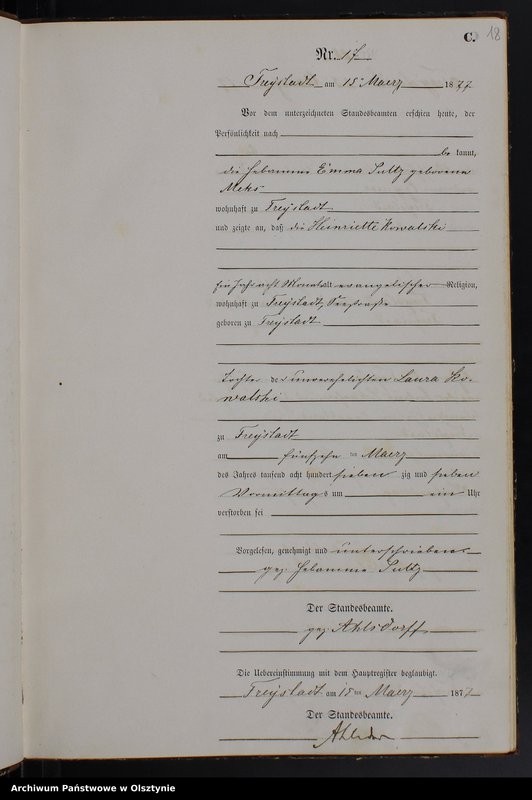 C. 18
Nr. 17
Freystadt am 15ten Maerz 1877
Vor dem unterzeichneten Standesbeamten erschien heute, der
Persönlichkeit nach
be kannt,
die Hebamme Emma Sultz geborene
Meks
wohnhaft zu Freystadt
und zeigte an, daß die Heinriette Kowalski
Ein Jahr acht Monat alt evangelischer Religion,
wohnhaft zu Freystadt,
geboren zu Freystadt
Tochter der unverehelichten Laura Ko-
walski
zu Freystadt
am fünfzehn ten Maerz
des Jahres tausend acht hundert sieben zig und sieben
Vormittags um ein Uhr
verstorben sei
Vorgelesen, genehmigt und unterschrieben
gez. Hebamme Sultz
Der Standesbeamte.
gez. Ahlsdorff
Die Uebereinstimmung mit dem Hauptregister beglaubigt.
Freystadt am 15ten Maerz 1877
Der Standesbeamte.
Archiwum Państwowe w Olsztynie